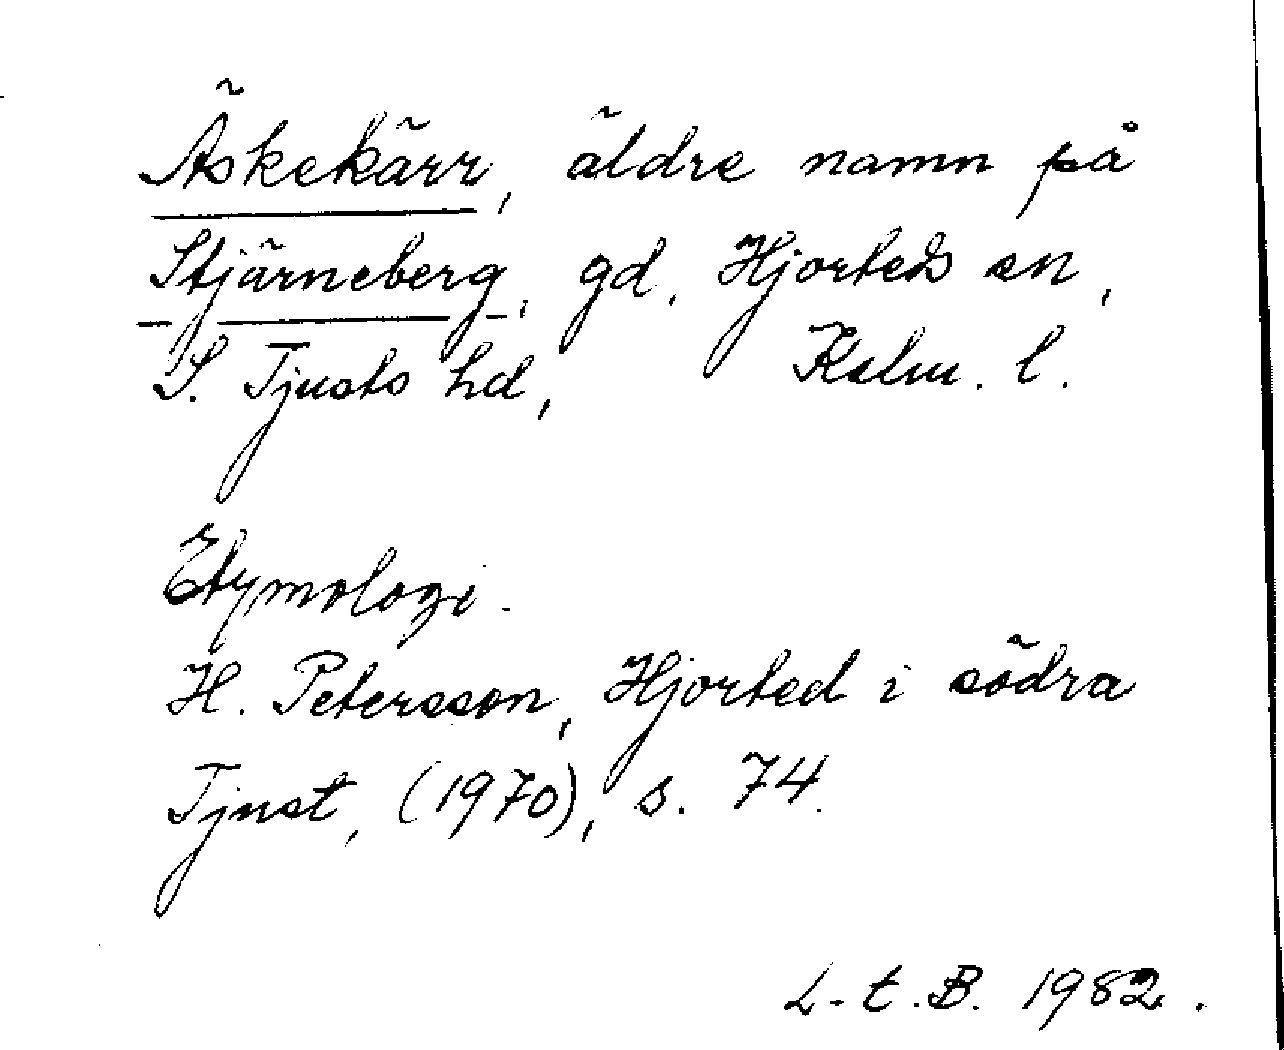 Äskekärr, äldre namn på
Stjärneberg, gd, Hjorteds sn,
S. Tjusts hd, Kalm. l.
Etymologi.
H. Petersson, Hjorted i södra
Tjust, (1970), s. 74.
L. t. B. 1982.